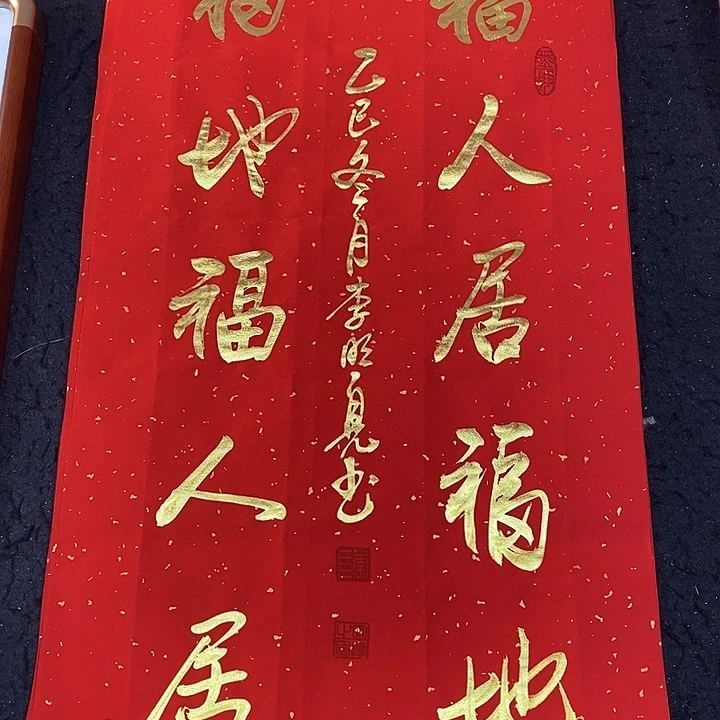 福人居福地
福地福人居
乙巳冬月李明亮书